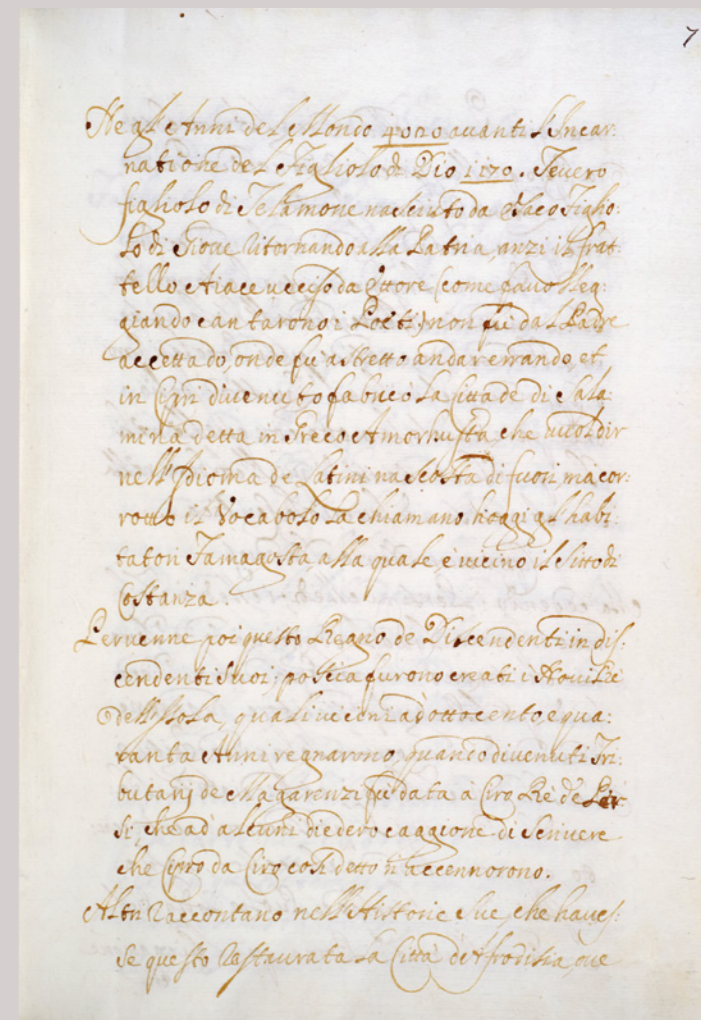 7
Ne gl'Anni del Mondo 4020 auanti l'Incar:
natione del Figliolo di Dio 1170. Teucro
figliolo di Telamone nasciuto da Eaco Figlio:
lo di Gioue ritornando alla Patria, anzi il frat:
tello Aiace ucciso da Ettore (come fauolleg:
giando cantarono i Poeti) non fù dal Padre
accettado, onde fu astretto andar errando, et
in Cipri diuenuto fabricò la Citta de di Sala:
mina detta in Greco Amorhusta, che uuol dir
nell'Idioma de Latini nascosta di fuori, mà cor:
rotto il Vocabolo la chiamano hoggi gl'habi:
tatori Famagosta alla quale è uicino il Sitto di
Costanza.
Peruenne poi questo Regno de Discendenti in dis:
cendenti Suoi; poscia furono creati i Noui Rè
dell'Isola, quali uicini ad ottocento, e qua:
ranta Anni regnarono, quando diuenuti Tri:
butarij de fù data à Ciro Rè de Per
si, che ad alcuni diedero caggione di Scriuere
che Cipro da Ciro così detto n'accennorono.
Altri raccontano nell'Historie Sue, che haues:
se questo restaurata la Città di Afrodisia, oue